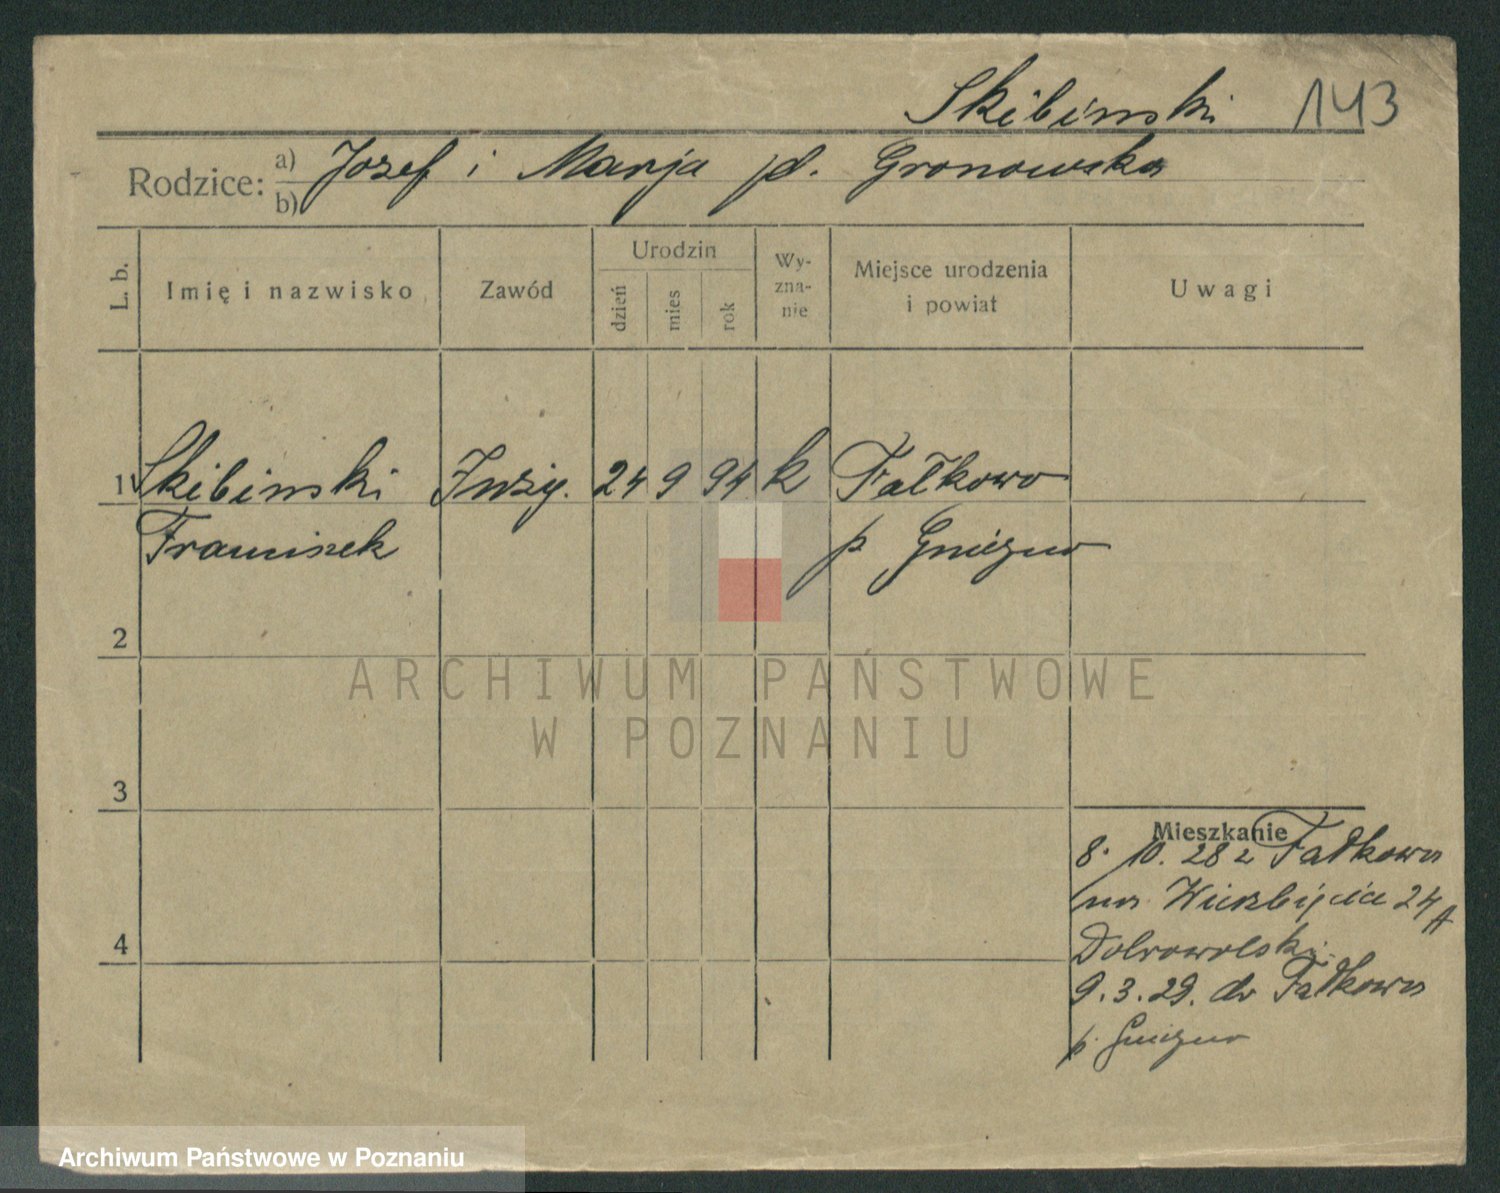 Skibinski 143
Rodzice: a) Jozef i Marja pd. Gronowska
b)
L. b. Imię i nazwisko Zawód Urodzin dzień mies rok Wy-zna-nie Miejsce urodzenia i powiat Uwagi
1 Skibinski Inży. 24 9 94 k Fałkowo
Franciszek p Gniezno
2
ARCHIWUM PAŃSTWOWE
W POZNANIU
3
Mieszkanie
8. 10. 28 z Fałkowa
na Wierzbięcice 24 A
4
Dobrowolski
9. 3. 29. do Fałkowa
p. Gniezno
Archiwum Państwowe w Poznaniu